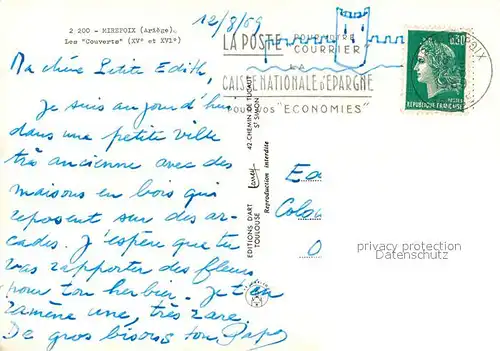 2 200 - MIREPOIX (Ariège).
Les "Couverts" (XV° et XVI°)
12/8/69
LA POSTE POUR VOTRE COURRIER
CAISSE NATIONALE d'EPARGNE
POUR VOS "ECONOMIES"
0,30
POSTES
REPUBLIQUE FRANÇAISE
Ma chère Petite Edith,
Je suis aujourd'hui
dans une petite ville
très ancienne avec des
maisons en bois qui
reposent sur des ar-
cades. J'espère que tu
vas rapporter des fleurs
pour ton herbier. Je t'en
ramène une, très rare.
De gros bisous ton Papa
EDITIONS D'ART
TOULOUSE
42, CHEMIN DE TUCAUT
ST SIMON
Reproduction interdite
Ed
Colo
O
privacy protection
Datenschutz